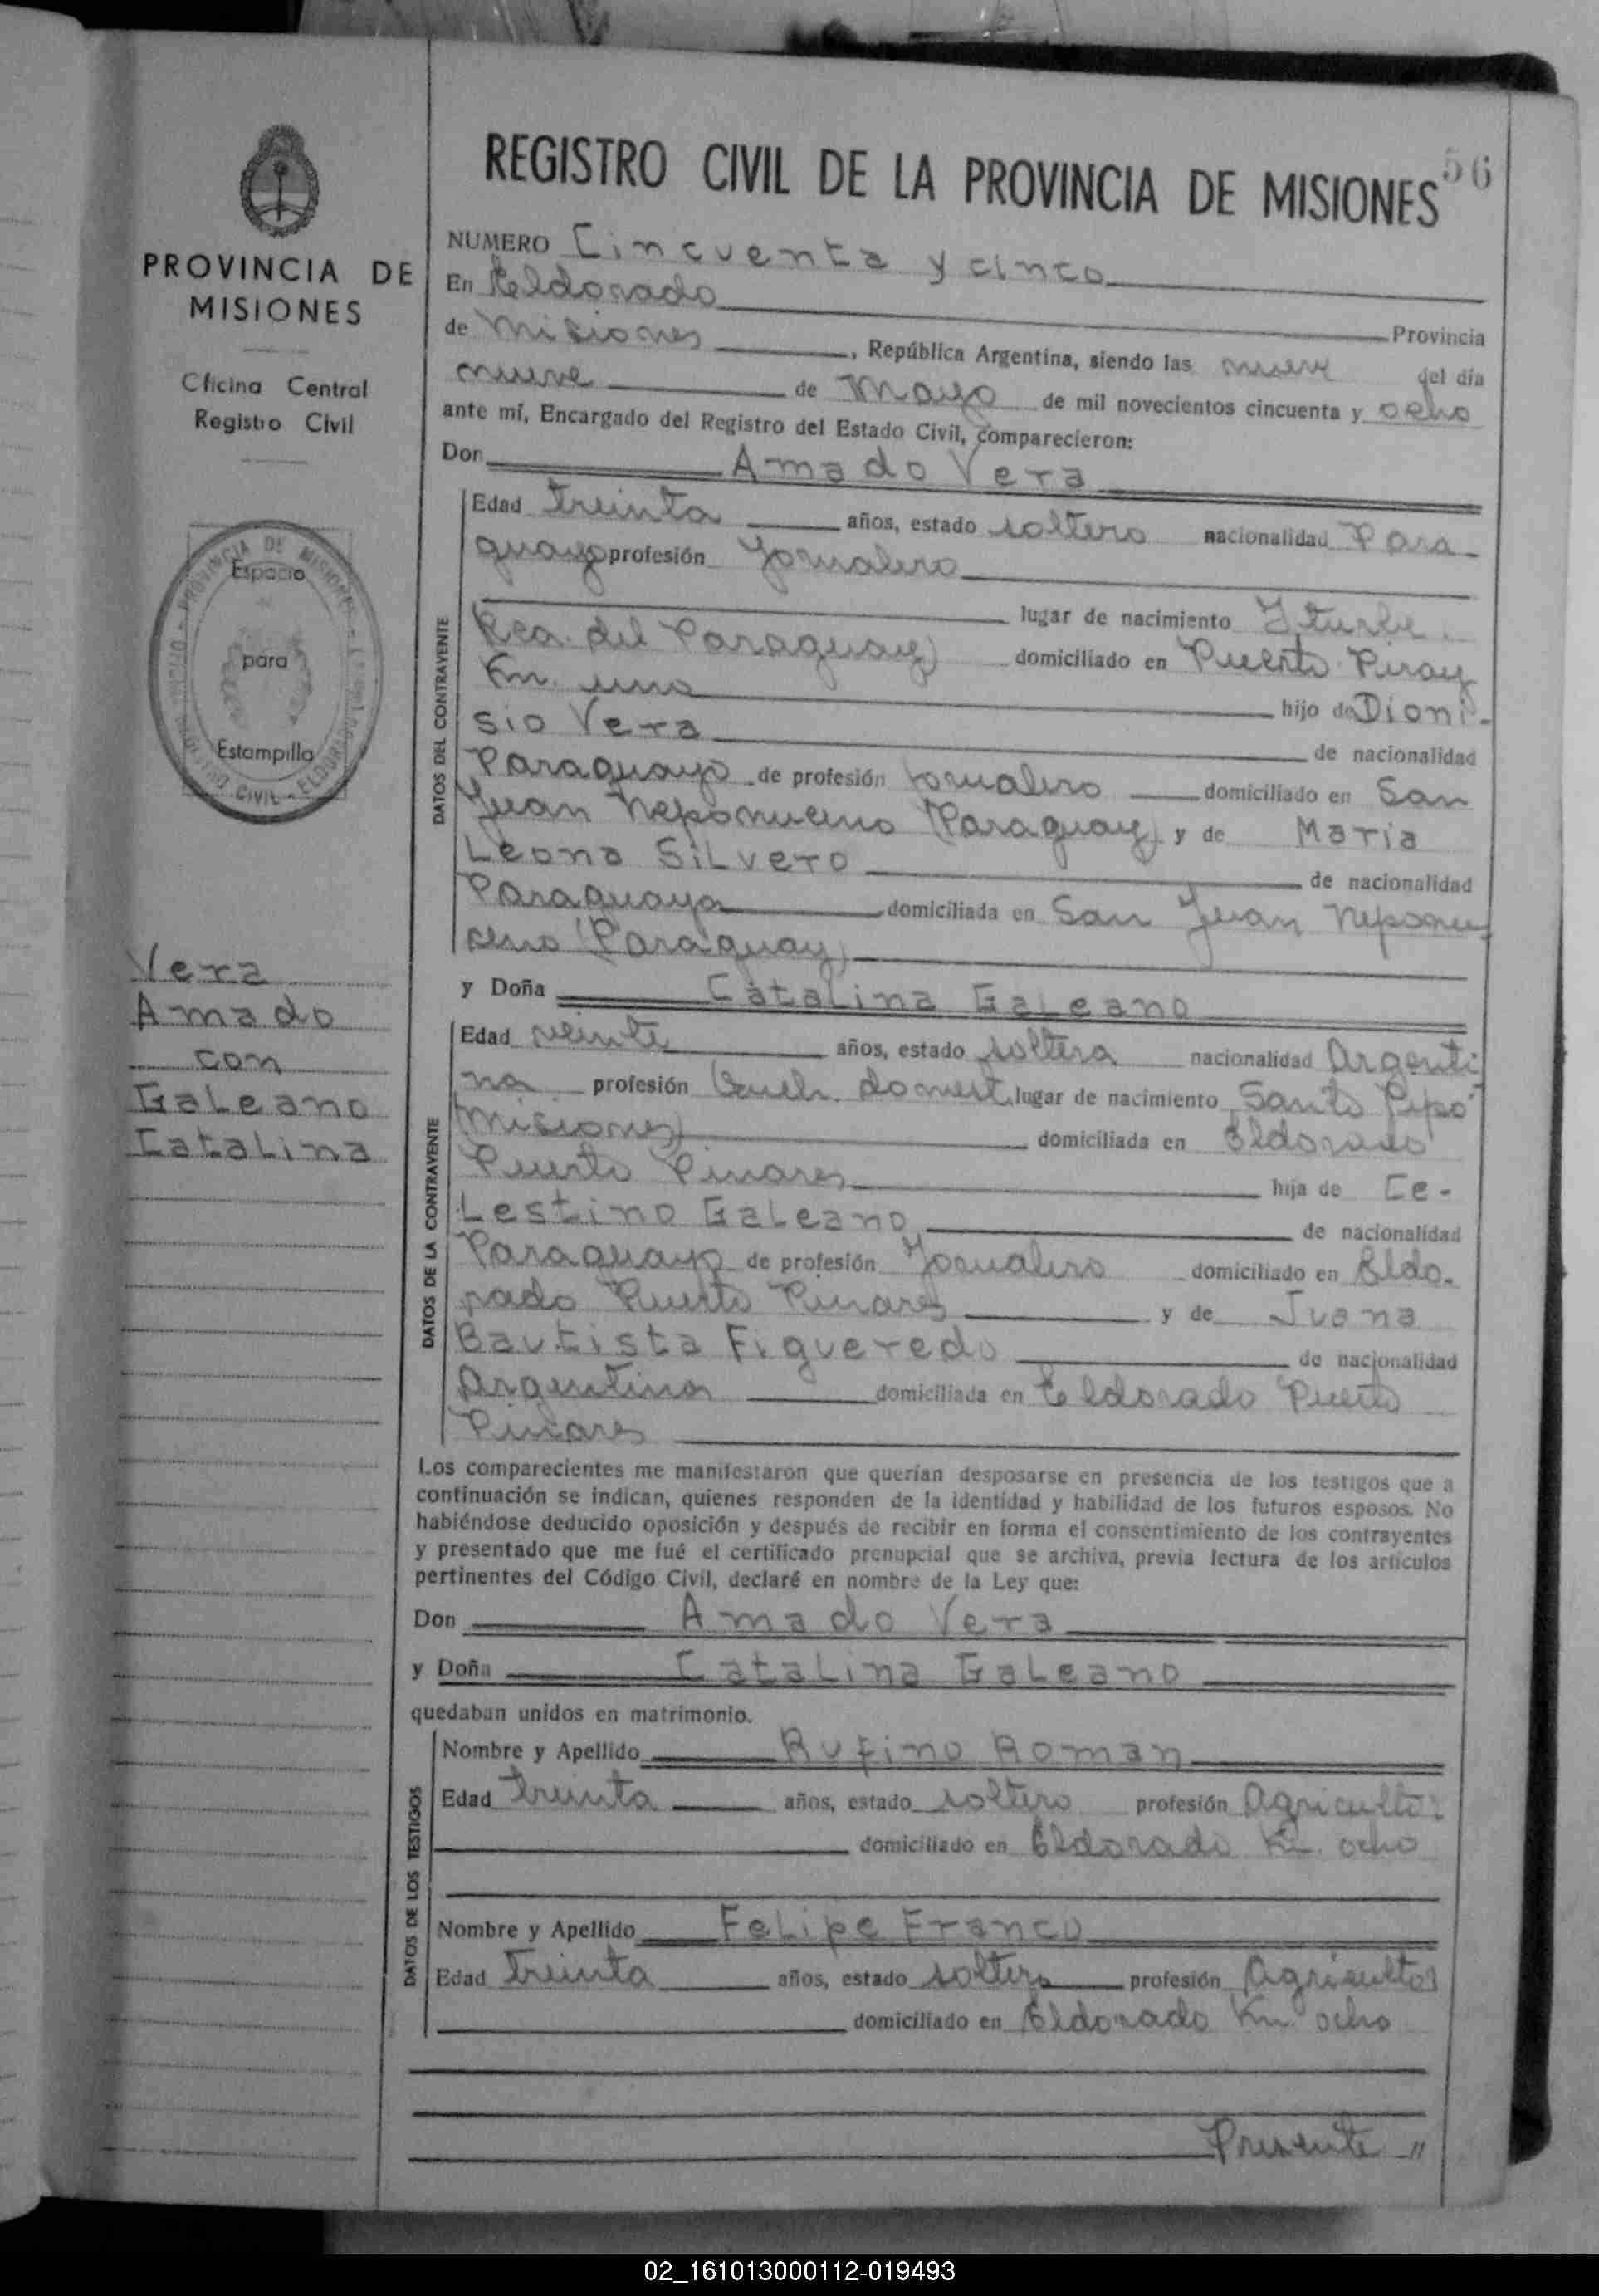 REGISTRO CIVIL DE LA PROVINCIA DE MISIONES 56
PROVINCIA DE
MISIONES
Oficina Central
Registro Civil
PROVINCIA DE MISIONES
Espacio
para
Estampilla
CIVIL - ELDORADO
Vera
Amado
con
Galeano
Catalina
NUMERO Cincuenta y cinco
En Eldorado Provincia
de Misiones, República Argentina, siendo las nueve del día
nueve de Mayo de mil novecientos cincuenta y ocho
ante mí, Encargado del Registro del Estado Civil, comparecieron:
Don Amado Vera
DATOS DEL CONTRAYENTE
Edad treinta años, estado soltero nacionalidad Para-
guayo profesión Jornalero
lugar de nacimiento Iturbe
Rca. del Paraguay) domiciliado en Puerto Piray
Km. uno hijo de Dioni-
sio Vera de nacionalidad
Paraguayo de profesión Jornalero domiciliado en San
Juan Nepomuceno (Paraguay) y de Maria
Leona Silvero de nacionalidad
Paraguaya domiciliada en San Juan Nepomu-
ceno (Paraguay)
y Doña Catalina Galeano
DATOS DE LA CONTRAYENTE
Edad veinte años, estado soltera nacionalidad Argenti-
na profesión Queh. domest. lugar de nacimiento Santo Pipó
(Misiones) domiciliada en Eldorado
Puerto Pinares hija de Ce-
lestino Galeano de nacionalidad
Paraguayo de profesión Jornalero domiciliado en Eldo-
rado Puerto Pinares y de Juana
Bautista Figueredo de nacionalidad
Argentina domiciliada en Eldorado Puerto
Pinares
Los comparecientes me manifestaron que querían desposarse en presencia de los testigos que a
continuación se indican, quienes responden de la identidad y habilidad de los futuros esposos. No
habiéndose deducido oposición y después de recibir en forma el consentimiento de los contrayentes
y presentado que me fué el certificado prenupcial que se archiva, previa lectura de los artículos
pertinentes del Código Civil, declaré en nombre de la Ley que:
Don Amado Vera
y Doña Catalina Galeano
quedaban unidos en matrimonio.
DATOS DE LOS TESTIGOS
Nombre y Apellido Rufino Roman
Edad treinta años, estado soltero profesión Agricultor
domiciliado en Eldorado Km. ocho
Nombre y Apellido Felipe Franco
Edad treinta años, estado soltero profesión Agricultor
domiciliado en Eldorado Km. ocho
Presente "
02_161013000112-019493